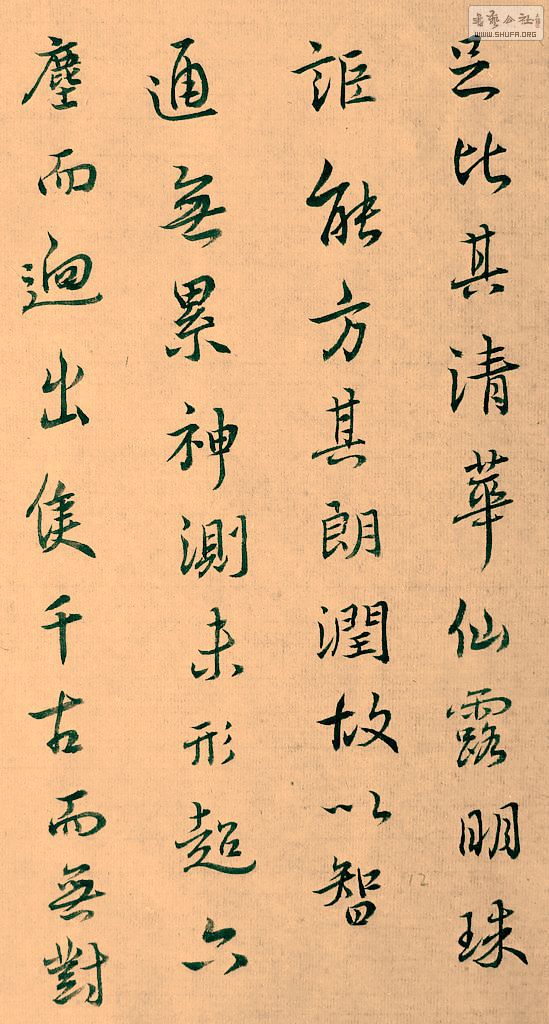 足比其清華仙露明珠
詎能方其朗潤故以智
通無累神測未形超六
塵而迥出隻千古而無對
12
WWW.SHUFA.ORG